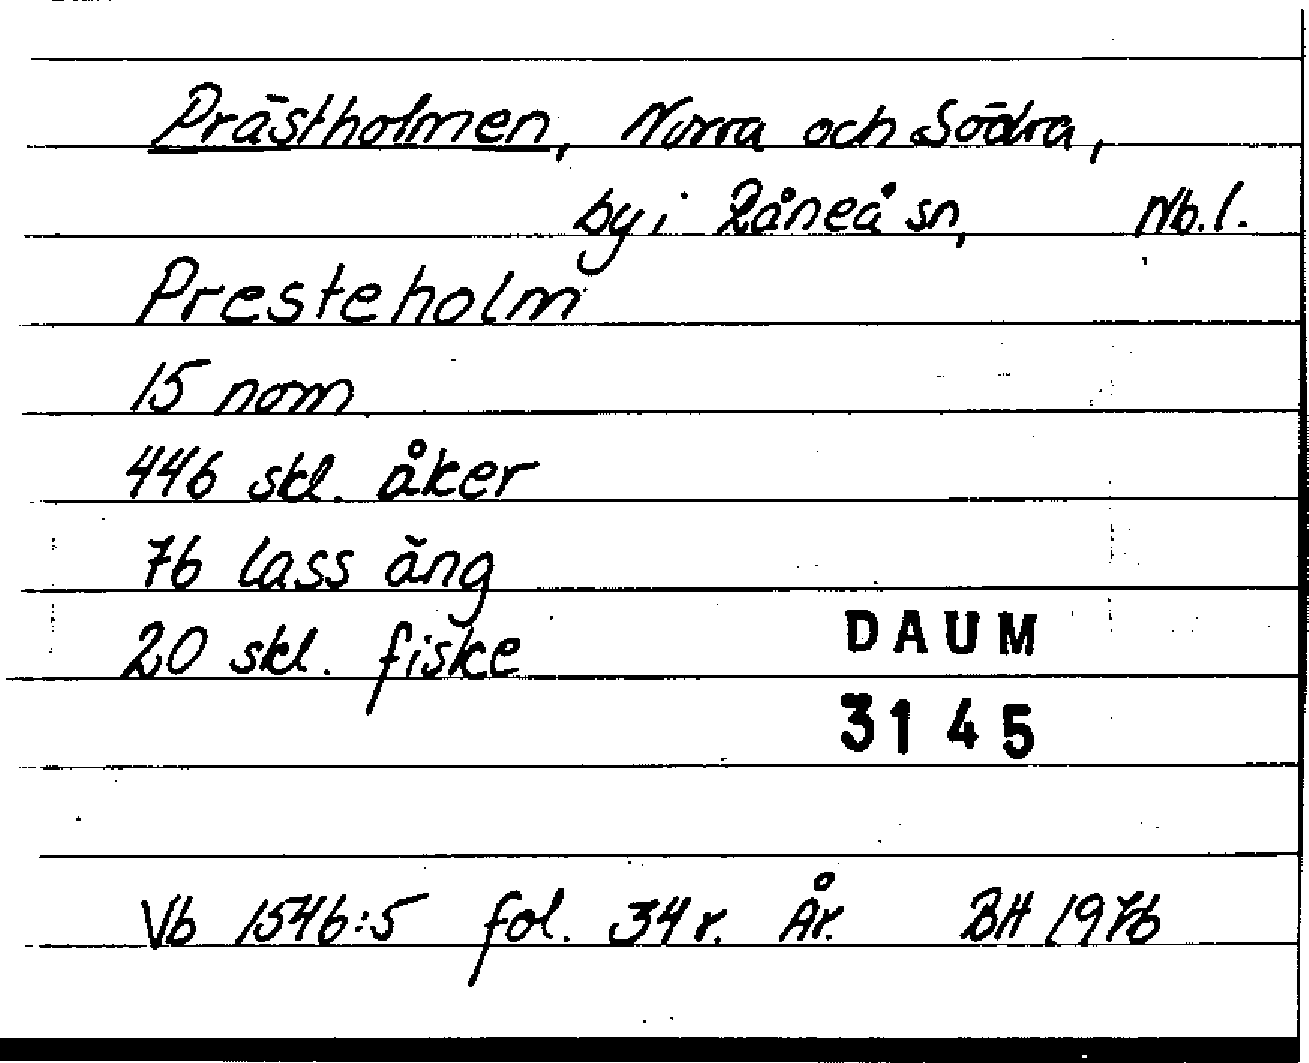 Prästholmen, Norra och Södra,
by i Råneå sn, Nb.l.
Presteholm
15 nom
446 skl. åker
76 lass äng
20 skl. fiske
DAUM
3145
Vb 1546:5 fol. 34 r. År. BH 1976